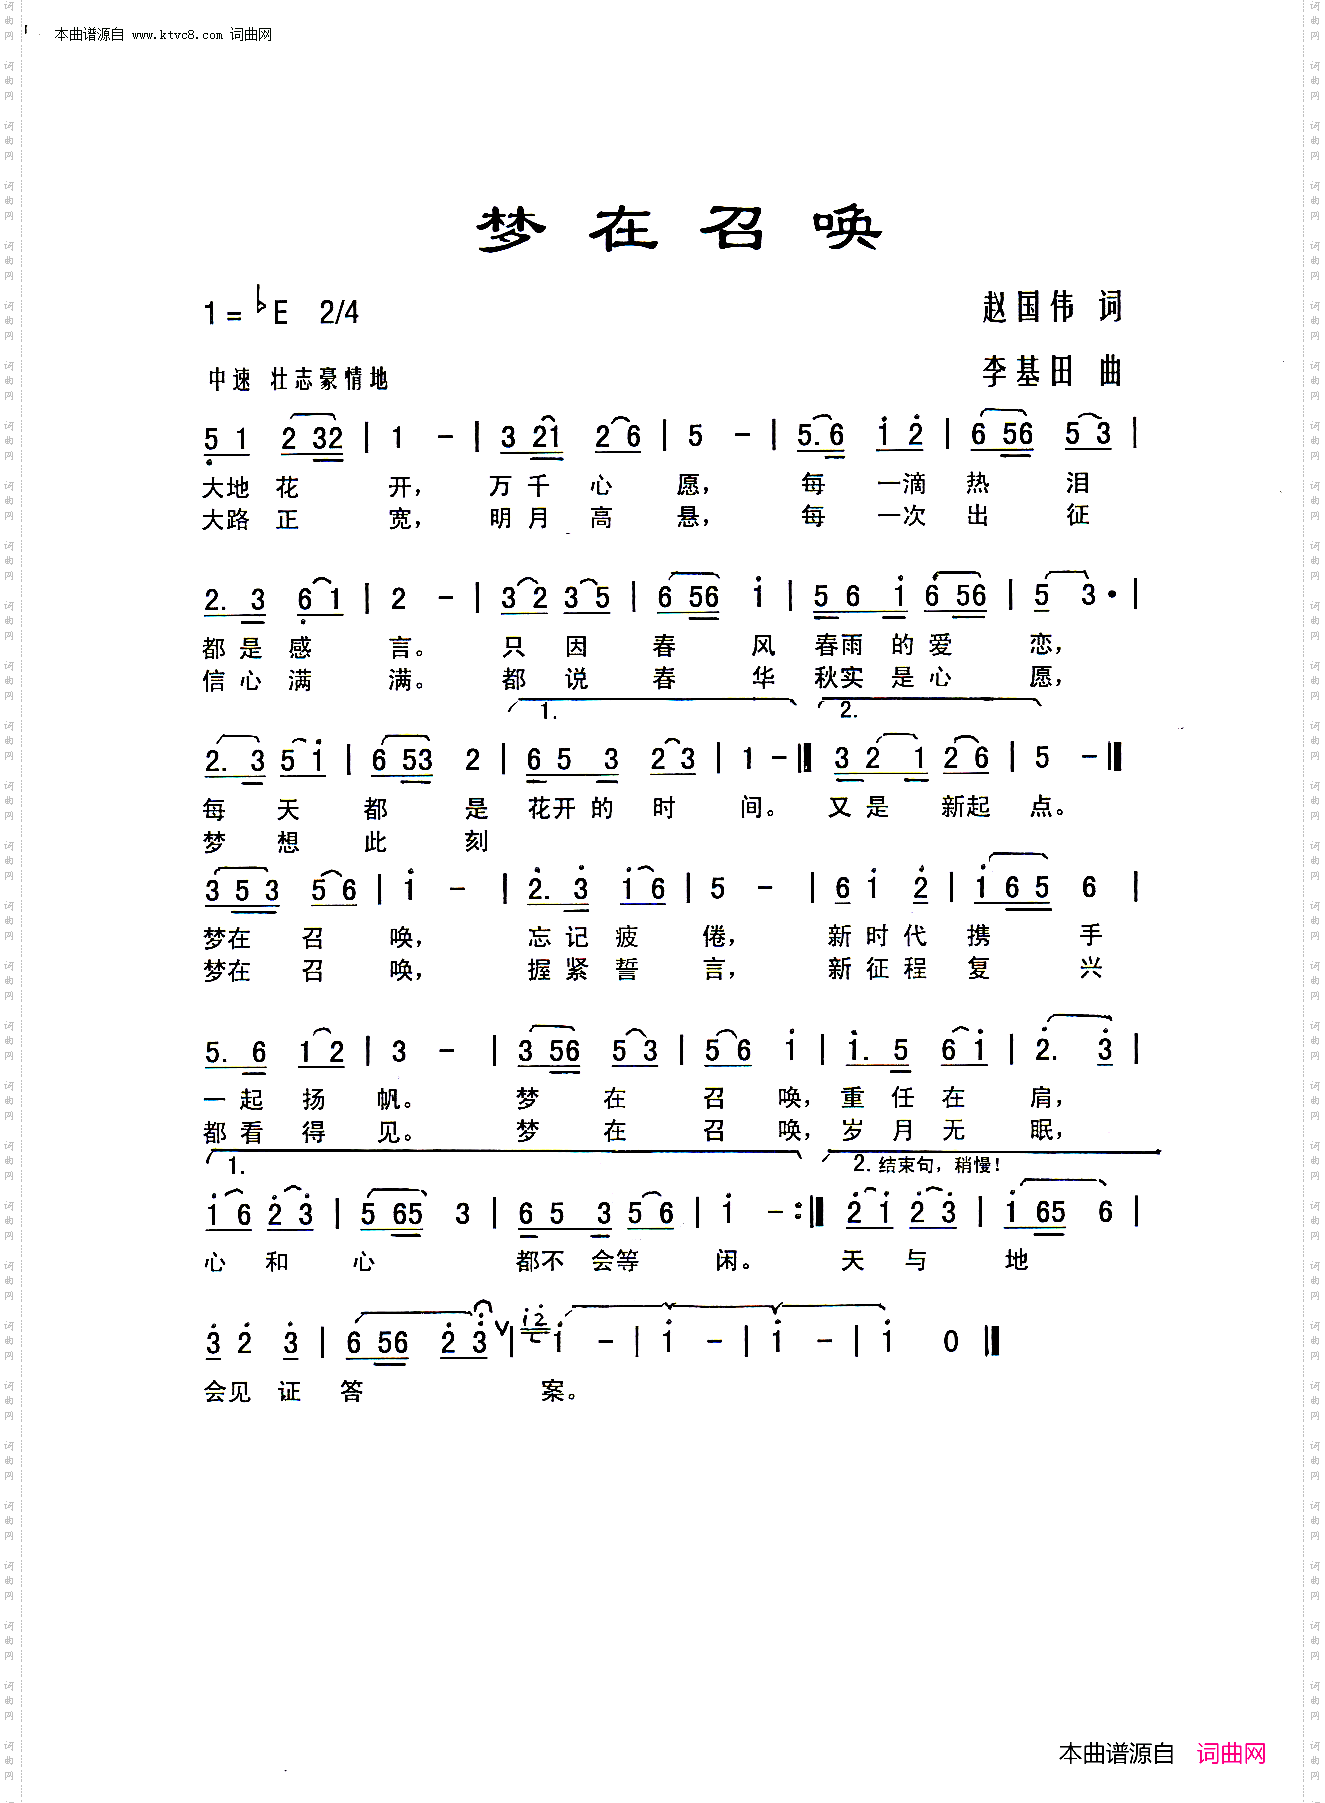 本曲谱源自 www.ktvc8.com 词曲网
梦在召唤
1=♭E 2/4
赵国伟 词
中速 壮志豪情地
李基田 曲
5̣ 1 2 32 | 1 - | 3 21 2 6 | 5 - | 5. 6 i 2̇ | 6 56 5 3 |
大地 花 开， 万 千 心 愿， 每 一滴 热 泪
大路 正 宽， 明 月 高 悬， 每 一次 出 征
2. 3 6̣ 1 | 2 - | 3 2 3 5 | 6 56 i | 5 6 i 6 56 | 5 3· |
都 是 感 言。 只 因 春 风 春雨 的 爱 恋，
信 心 满 满。 都 说 春 华 秋实 是 心 愿，
1. 2.
2. 3 5 i | 6 53 2 | 6 5 3 2 3 | 1 - :‖ 3 2 1 2 6 | 5 - ‖
每 天 都 是 花开 的 时 间。 又 是 新起 点。
梦 想 此 刻
3 5 3 5 6 | i - | 2̇. 3̇ i 6 | 5 - | 6 i 2̇ | i 6 5 6 |
梦在 召 唤， 忘 记 疲 倦， 新 时 代 携 手
梦在 召 唤， 握 紧 誓 言， 新 征 程 复 兴
5. 6 1 2 | 3 - | 3 56 5 3 | 5 6 i | i. 5 6 i | 2̇. 3̇ |
一 起 扬 帆。 梦 在 召 唤， 重 任 在 肩，
都 看 得 见。 梦 在 召 唤， 岁 月 无 眠，
1. 2. 结束句，稍慢！
i 6 2̇ 3̇ | 5 65 3 | 6 5 3 5 6 | i - :‖ 2̇ i 2̇ 3̇ | i 65 6 |
心 和 心 都不 会等 闲。 天 与 地
3̇ 2̇ 3̇ | 6 56 2̇ 3̇ ∨ | i2̇ i - | i - | i - | i 0 ‖
会见 证 答 案。
本曲谱源自 词曲网